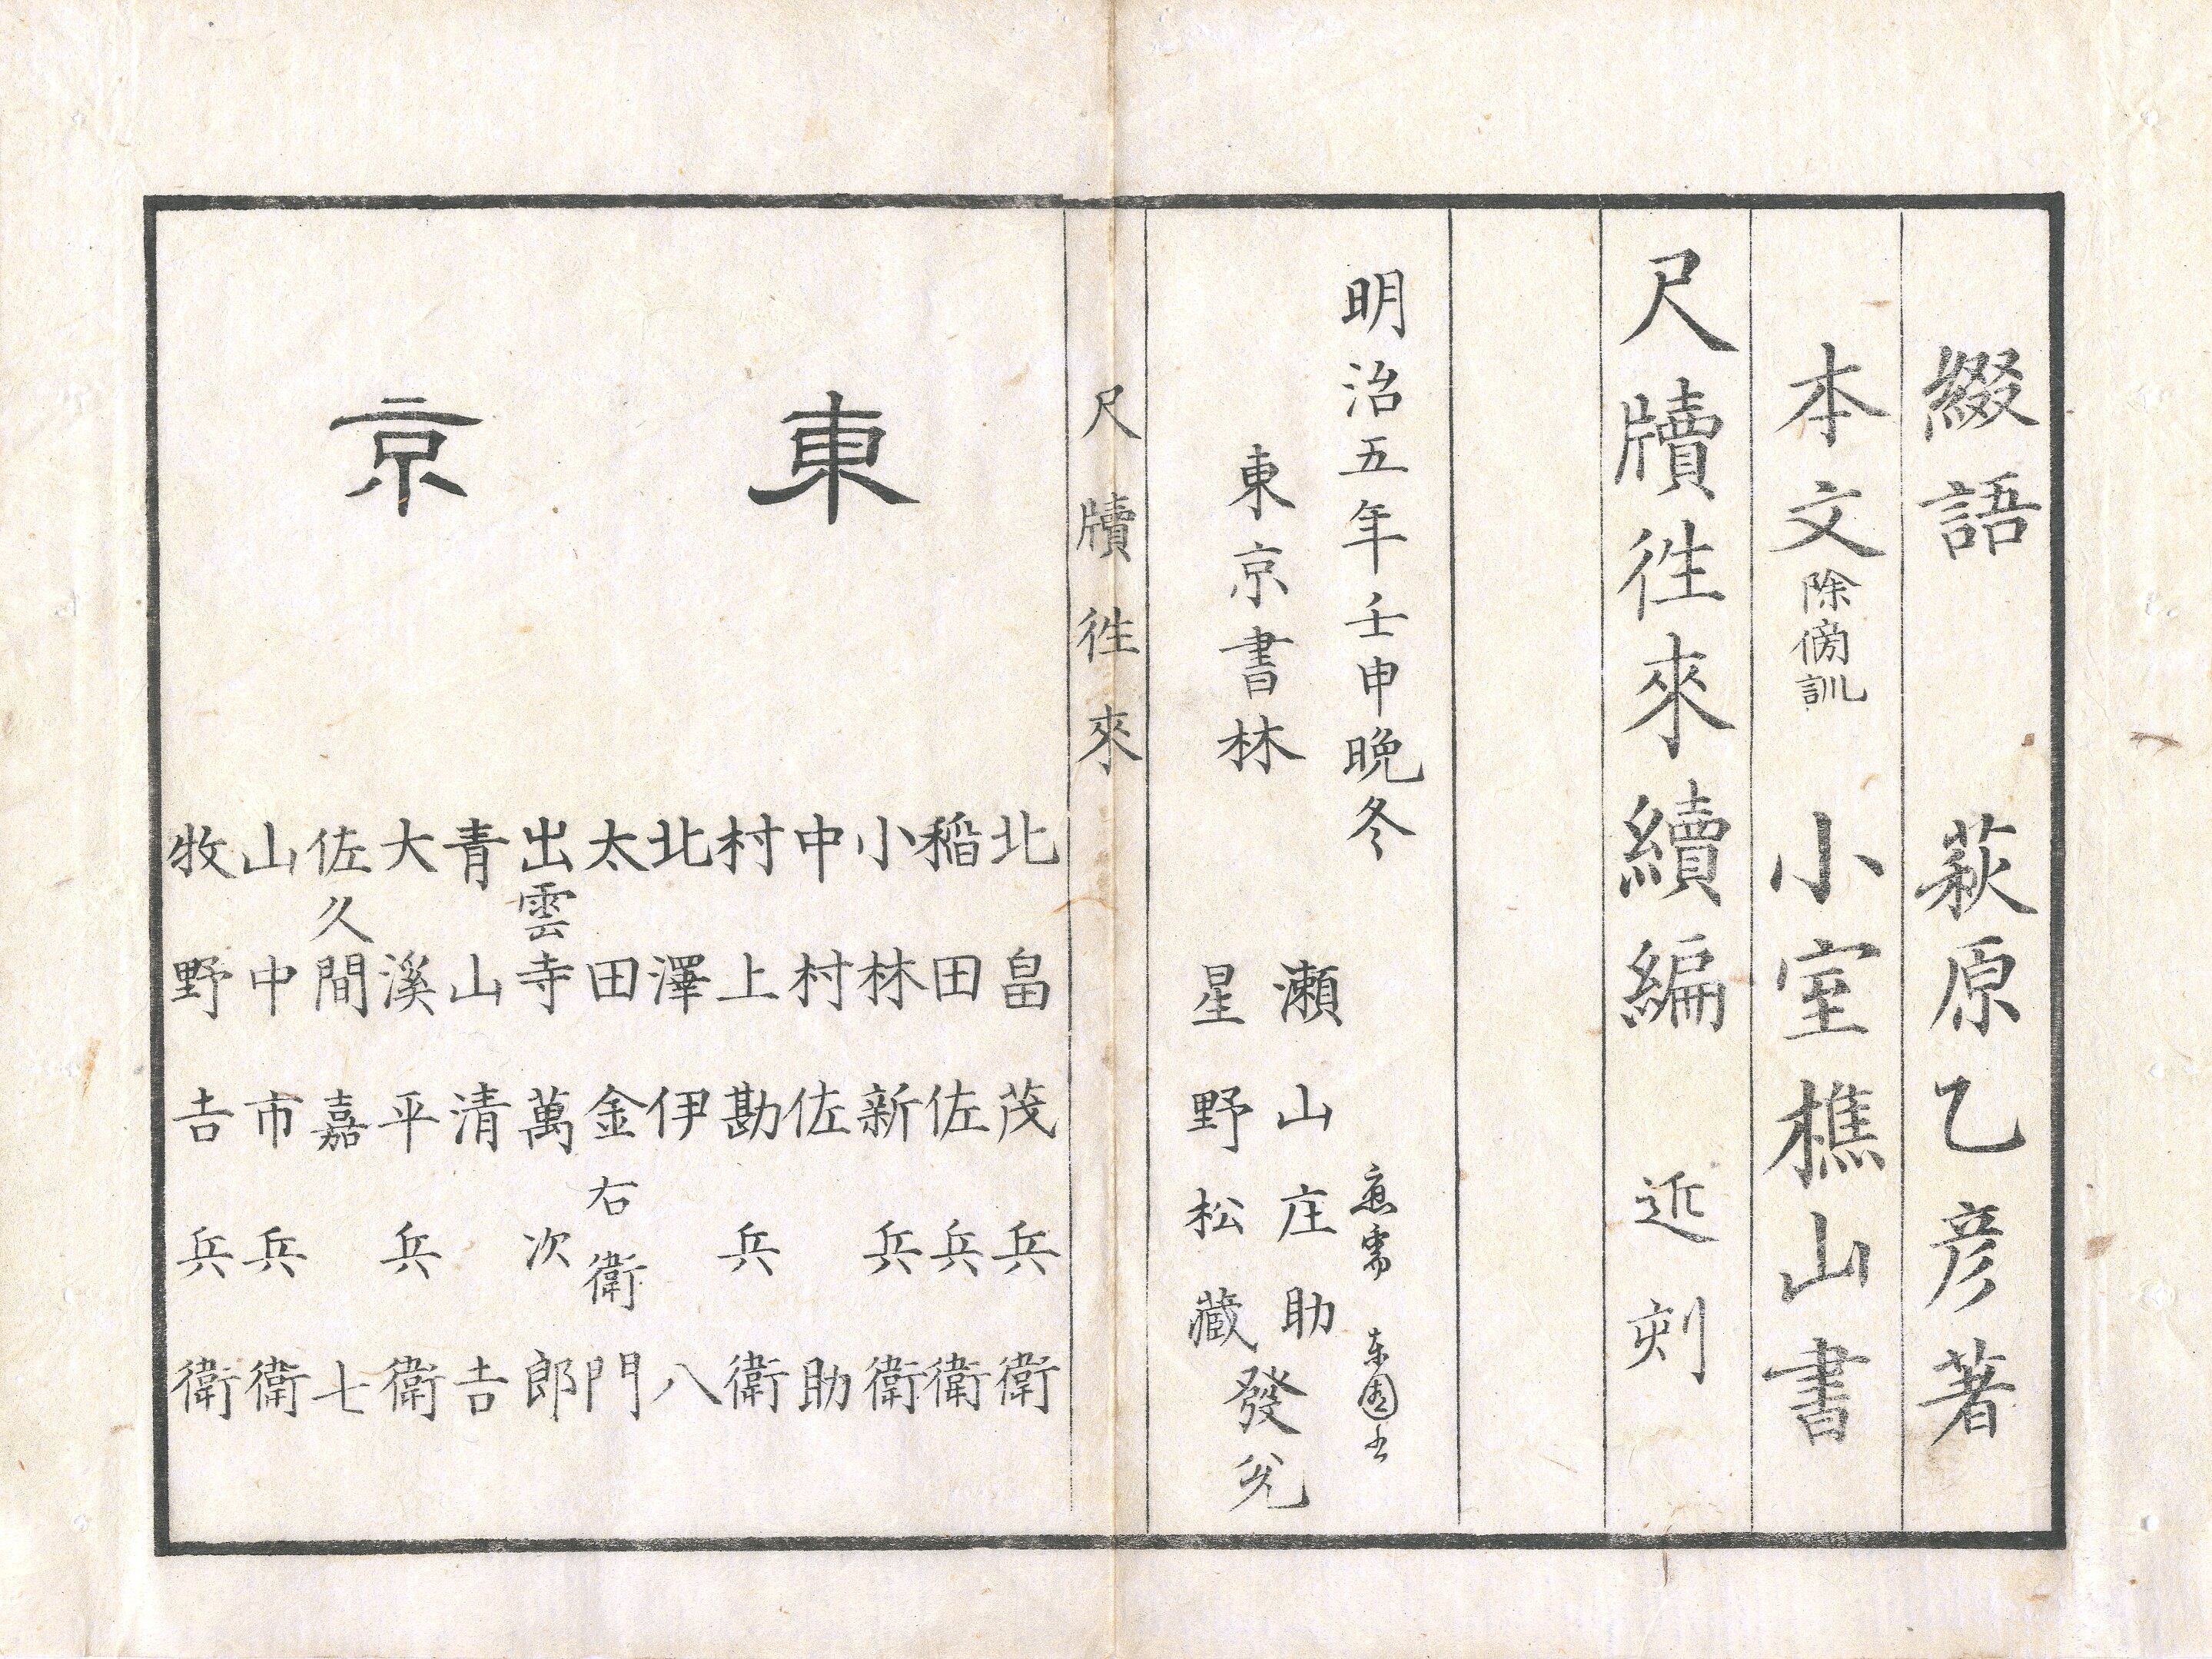 綴語 萩原乙彦著
本文除傍訓 小室樵山書
尺牘徃來續編 近刻
明治五年壬申晩冬
應需 東園書
東京書林
瀬山庄助
星野松藏
發兌
尺牘徃來
東京
北畠茂兵衛
稲田佐兵衛
小林新兵衛
中村佐助
村上勘兵衛
北澤伊八
太田金右衛門
出雲寺萬次郎
青山清吉
大溪平兵衛
佐久間嘉七
山中市兵衛
牧野吉兵衛